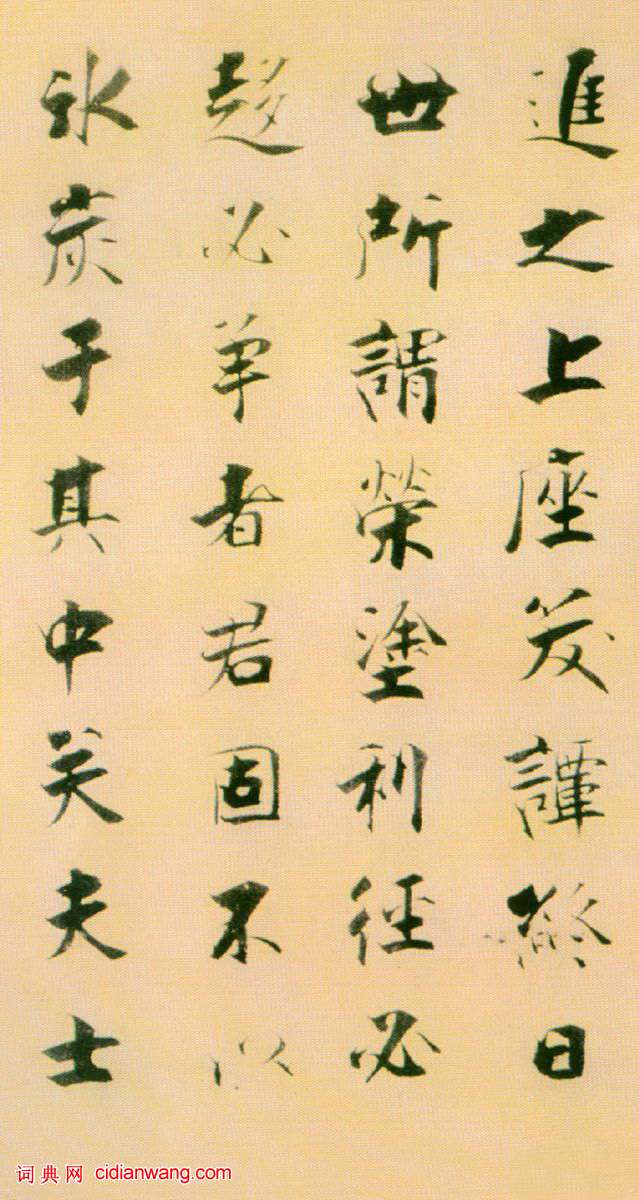 進之上座笑終日
世所謂榮塗利徑必
趍必争者君固不以
氷炭于其中矣夫士
词典网 cidianwang.com